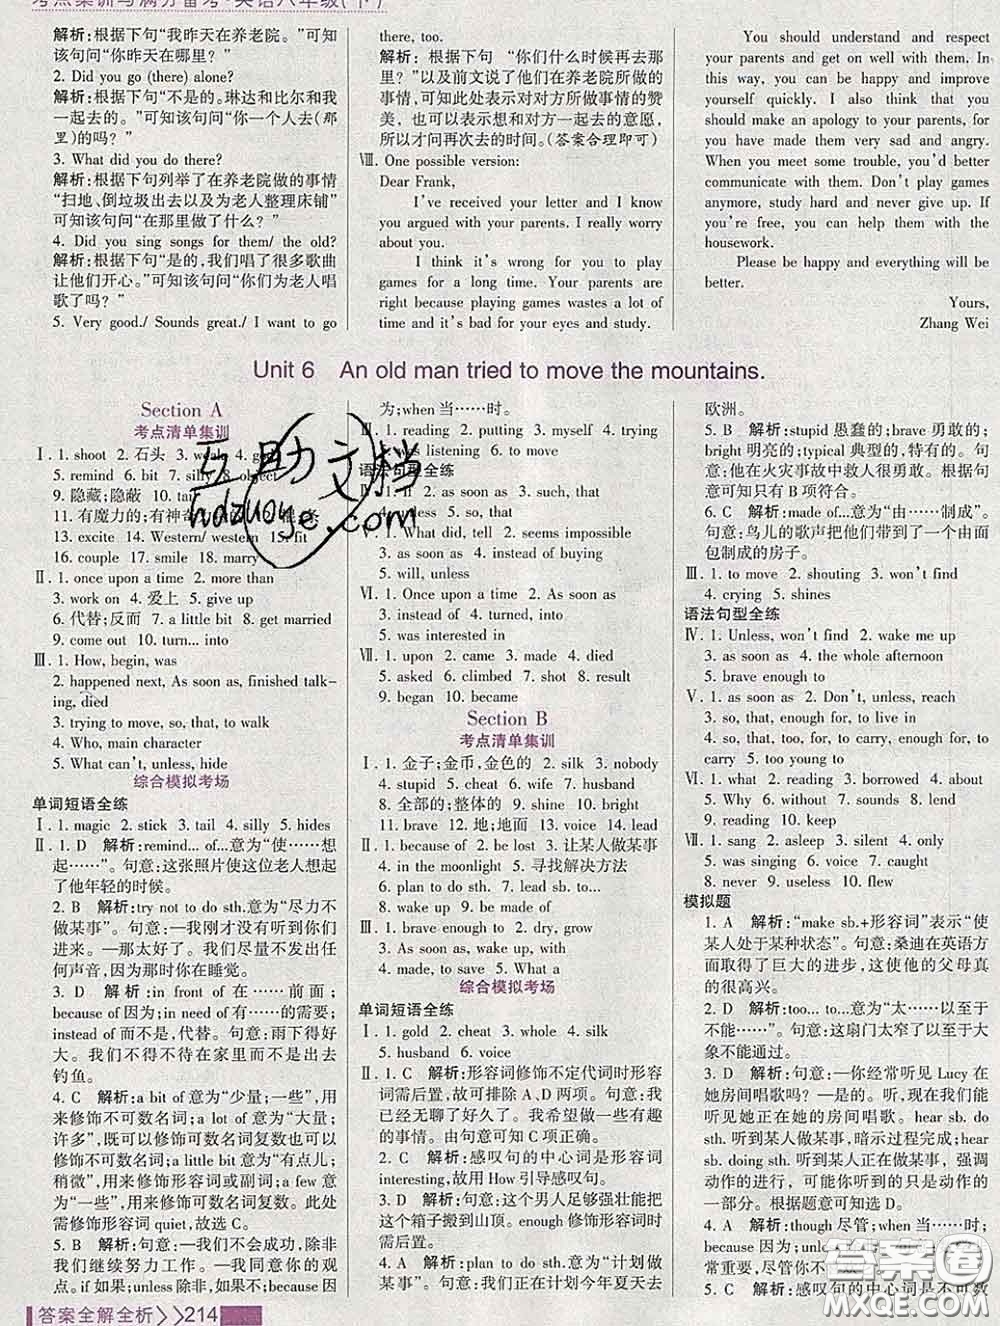 考点集训与满分备考·英语八年级(下)
解析:根据下句“我昨天在养老院。”可知
该句问“你昨天在哪里？”
2. Did you go (there) alone?
解析:根据下句“不是的。琳达和比尔和我
一起去的。”可知该句问“你一个人去(那
里)的吗？”
3. What did you do there?
解析:根据下句列举了在养老院做的事情
“扫地、倒垃圾出去以及为老人整理床铺”
可知该句问“在那里做了什么？”
4. Did you sing songs for them/ the old?
解析:根据下句“是的,我们唱了很多歌曲
让他们开心。”可知该句问“你们为老人唱
歌了吗？”
5. Very good./ Sounds great./ I want to go
there, too.
解析:根据下句“你们什么时候再去那
里？”以及前文说了他们在养老院所做的
事情,可知此处表示对对方所做事情的赞
美，也可以表示想和对方一起去的意愿,
所以才问再次去的时间。(答案合理即可)
Ⅷ. One possible version:
Dear Frank,
I've received your letter and I know
you argued with your parents. I really worry
about you.
I think it's wrong for you to play
games for a long time. Your parents are
right because playing games wastes a lot of
time and it's bad for your eyes and study.
You should understand and respect
your parents and get on well with them. In
this way, you can be happy and improve
yourself quickly. I also think that you
should make an apology to your parents, for
they must have been very sad and angry.
When you meet some trouble, you'd better
communicate with them. Don't play games
anymore, study hard and never give up. If
you're free, you can help them with the
housework.
Please be happy and everything will be
better.
Yours,
Zhang Wei
Unit 6 An old man tried to move the mountains.
Section A
考点清单集训
Ⅰ. 1. shoot 2. 石头 3. weak 4. god
5. remind 6. bit 7. silly 8. object
9. 隐藏;隐蔽 10. tail
11. 有魔力的;有神奇
13. excite 14. Western/ western 15. fit
16. couple 17. smile 18. marry
Ⅱ. 1. once upon a time 2. more than
3. work on 4. 爱上 5. give up
6. 代替;反而 7. a little bit 8. get married
9. come out 10. turn... into
Ⅲ. 1. How, begin, was
2. happened next, As soon as, finished talk-
ing, died
3. trying to move, so, that, to walk
4. Who, main character
5. What can't, unless, hide
综合模拟考场
单词短语全练
Ⅰ. 1. magic 2. stick 3. tail 4. silly 5. hides
Ⅱ. 1. D 解析:remind... of...意为“使……想
起……”。句意:这张照片使这位老人想起
了他年轻的时候。
2. B 解析:try not to do sth.意为“尽力不
做某事”。句意:—我刚才没有听到你们
进来。—那太好了。我们尽量不发出任
何声音,因为那时你在睡觉。
3. D 解析:in front of 在……前面;
because of 因为;in need of 有……的需要;
instead of 而不是,代替。句意:雨下得好
大。我们不得不待在家里而不是出去
钓鱼。
4. C 解析:a bit of 意为“少量;一些”,用
来修饰不可数名词;a lot of 意为“大量;
许多”,既可以修饰可数名词复数也可以
修饰不可数名词;a little bit 意为“有点儿;
稍微”,用来修饰形容词或副词;a few 意
为“一些”,用来修饰可数名词复数。此处
需修饰形容词 quiet,故选 C。
5. B 解析:句意:—我们不会成功,除非
我们继续努力工作。—我同意你的观
点。if 如果;unless 除非,如果不;because 因
为;when 当……时。
Ⅲ. 1. reading 2. putting 3. myself 4. trying
5. was listening 6. to move
语法句型全练
Ⅳ. 1. If 2. as soon as 3. such, that
4. unless 5. so, that
Ⅴ. 1. What did, tell 2. seems impossible
3. as soon as 4. instead of buying
5. will, unless
Ⅵ. 1. Once upon a time 2. As soon as
3. instead of 4. turned, into
5. was interested in
Ⅶ. 1. upon 2. came 3. made 4. died
5. asked 6. climbed 7. stop 8. told
9. began 10. became
Section B
考点清单集训
Ⅰ. 1. 金子;金币,金色的 2. silk 3. nobody
4. stupid 5. cheat 6. wife 7. husband
8. 全部的;整体的 9. shine 10. bright
11. brave 12. 地;地面 13. voice 14. lead
Ⅱ. 1. because of 2. be lost 3. 让某人做某事
4. in the moonlight 5. 寻找解决方法
6. plan to do sth. 7. lead sb. to...
8. wake up 9. be made of
Ⅲ. 1. brave enough to 2. dry, grow
3. As soon as, wake up, with
4. made, to save 5. What a
综合模拟考场
单词短语全练
Ⅰ. 1. gold 2. cheat 3. whole 4. silk
5. husband 6. voice
Ⅱ. 1. C 解析:形容词修饰不定代词时形容
词需后置,故可排除 A、D 两项。句意:我
已经无聊了好久了。我希望做一些有趣
的事情。由句意可知 C 项正确。
2. C 解析:感叹句的中心词是形容词
interesting,故用 How 引导感叹句。
3. D 解析:句意:这个男人足够强壮能把
这个箱子搬到山顶。enough 修饰形容词时
需后置。
4. A 解析:plan to do sth.意为“计划做
某事”。句意:我们正在计划今年夏天去
欧洲。
5. B 解析:stupid 愚蠢的;brave 勇敢的;
bright 明亮的;typical 典型的,特有的。句
意:他在火灾事故中救人很勇敢。根据句
意可知只有 B 项符合。
6. C 解析:made of...意为“由……制成”。
句意:鸟儿的歌声把他们带到了一个由面
包制成的房子。
Ⅲ. 1. to move 2. shouting 3. won't find
4. crying 5. shines
语法句型全练
Ⅳ. 1. Unless, won't find 2. wake me up
3. as soon as 4. the whole afternoon
5. brave enough to
Ⅴ. 1. as soon as 2. Don't, unless, reach
3. so, that, enough for, to live in
4. so, that, too, for, to carry, enough for, to
carry 5. too young to
Ⅵ. 1. what 2. reading 3. borrowed 4. about
5. Why 6. writing 7. sounds 8. lend
9. reading 10. keep
Ⅶ. 1. sang 2. asleep 3. silent 4. only
5. was singing 6. voice 7. caught
8. never 9. useless 10. flew
模拟题
1. A 解析:“make sb.+形容词”表示“使
某人处于某种状态”。句意:桑迪在英语方
面取得了巨大的进步,这使他的父母真
的很高兴。
2. D 解析:too... to...意为“太……以至于
不能……”。句意:这扇门太窄了以至于大
象不能通过。
3. D 解析:句意:—你经常听见 Lucy 在
她房间唱歌吗？—是的。听,现在我们能
听见她正在她的房间唱歌。hear sb. do
sth. 听到某人做某事,暗示过程完成;hear
sb. doing sth. 听到某人正在做某事,强调
动作的进行,可能你听到的只是动作的
一部分。根据题意可知选 D。
4. A 解析:though 尽管;when 当……时;
5. C 解析:感叹句的中心词是不可数
答案全解全析 214
互助文档
hdzuoye.com
答案圈
MXQE.COM